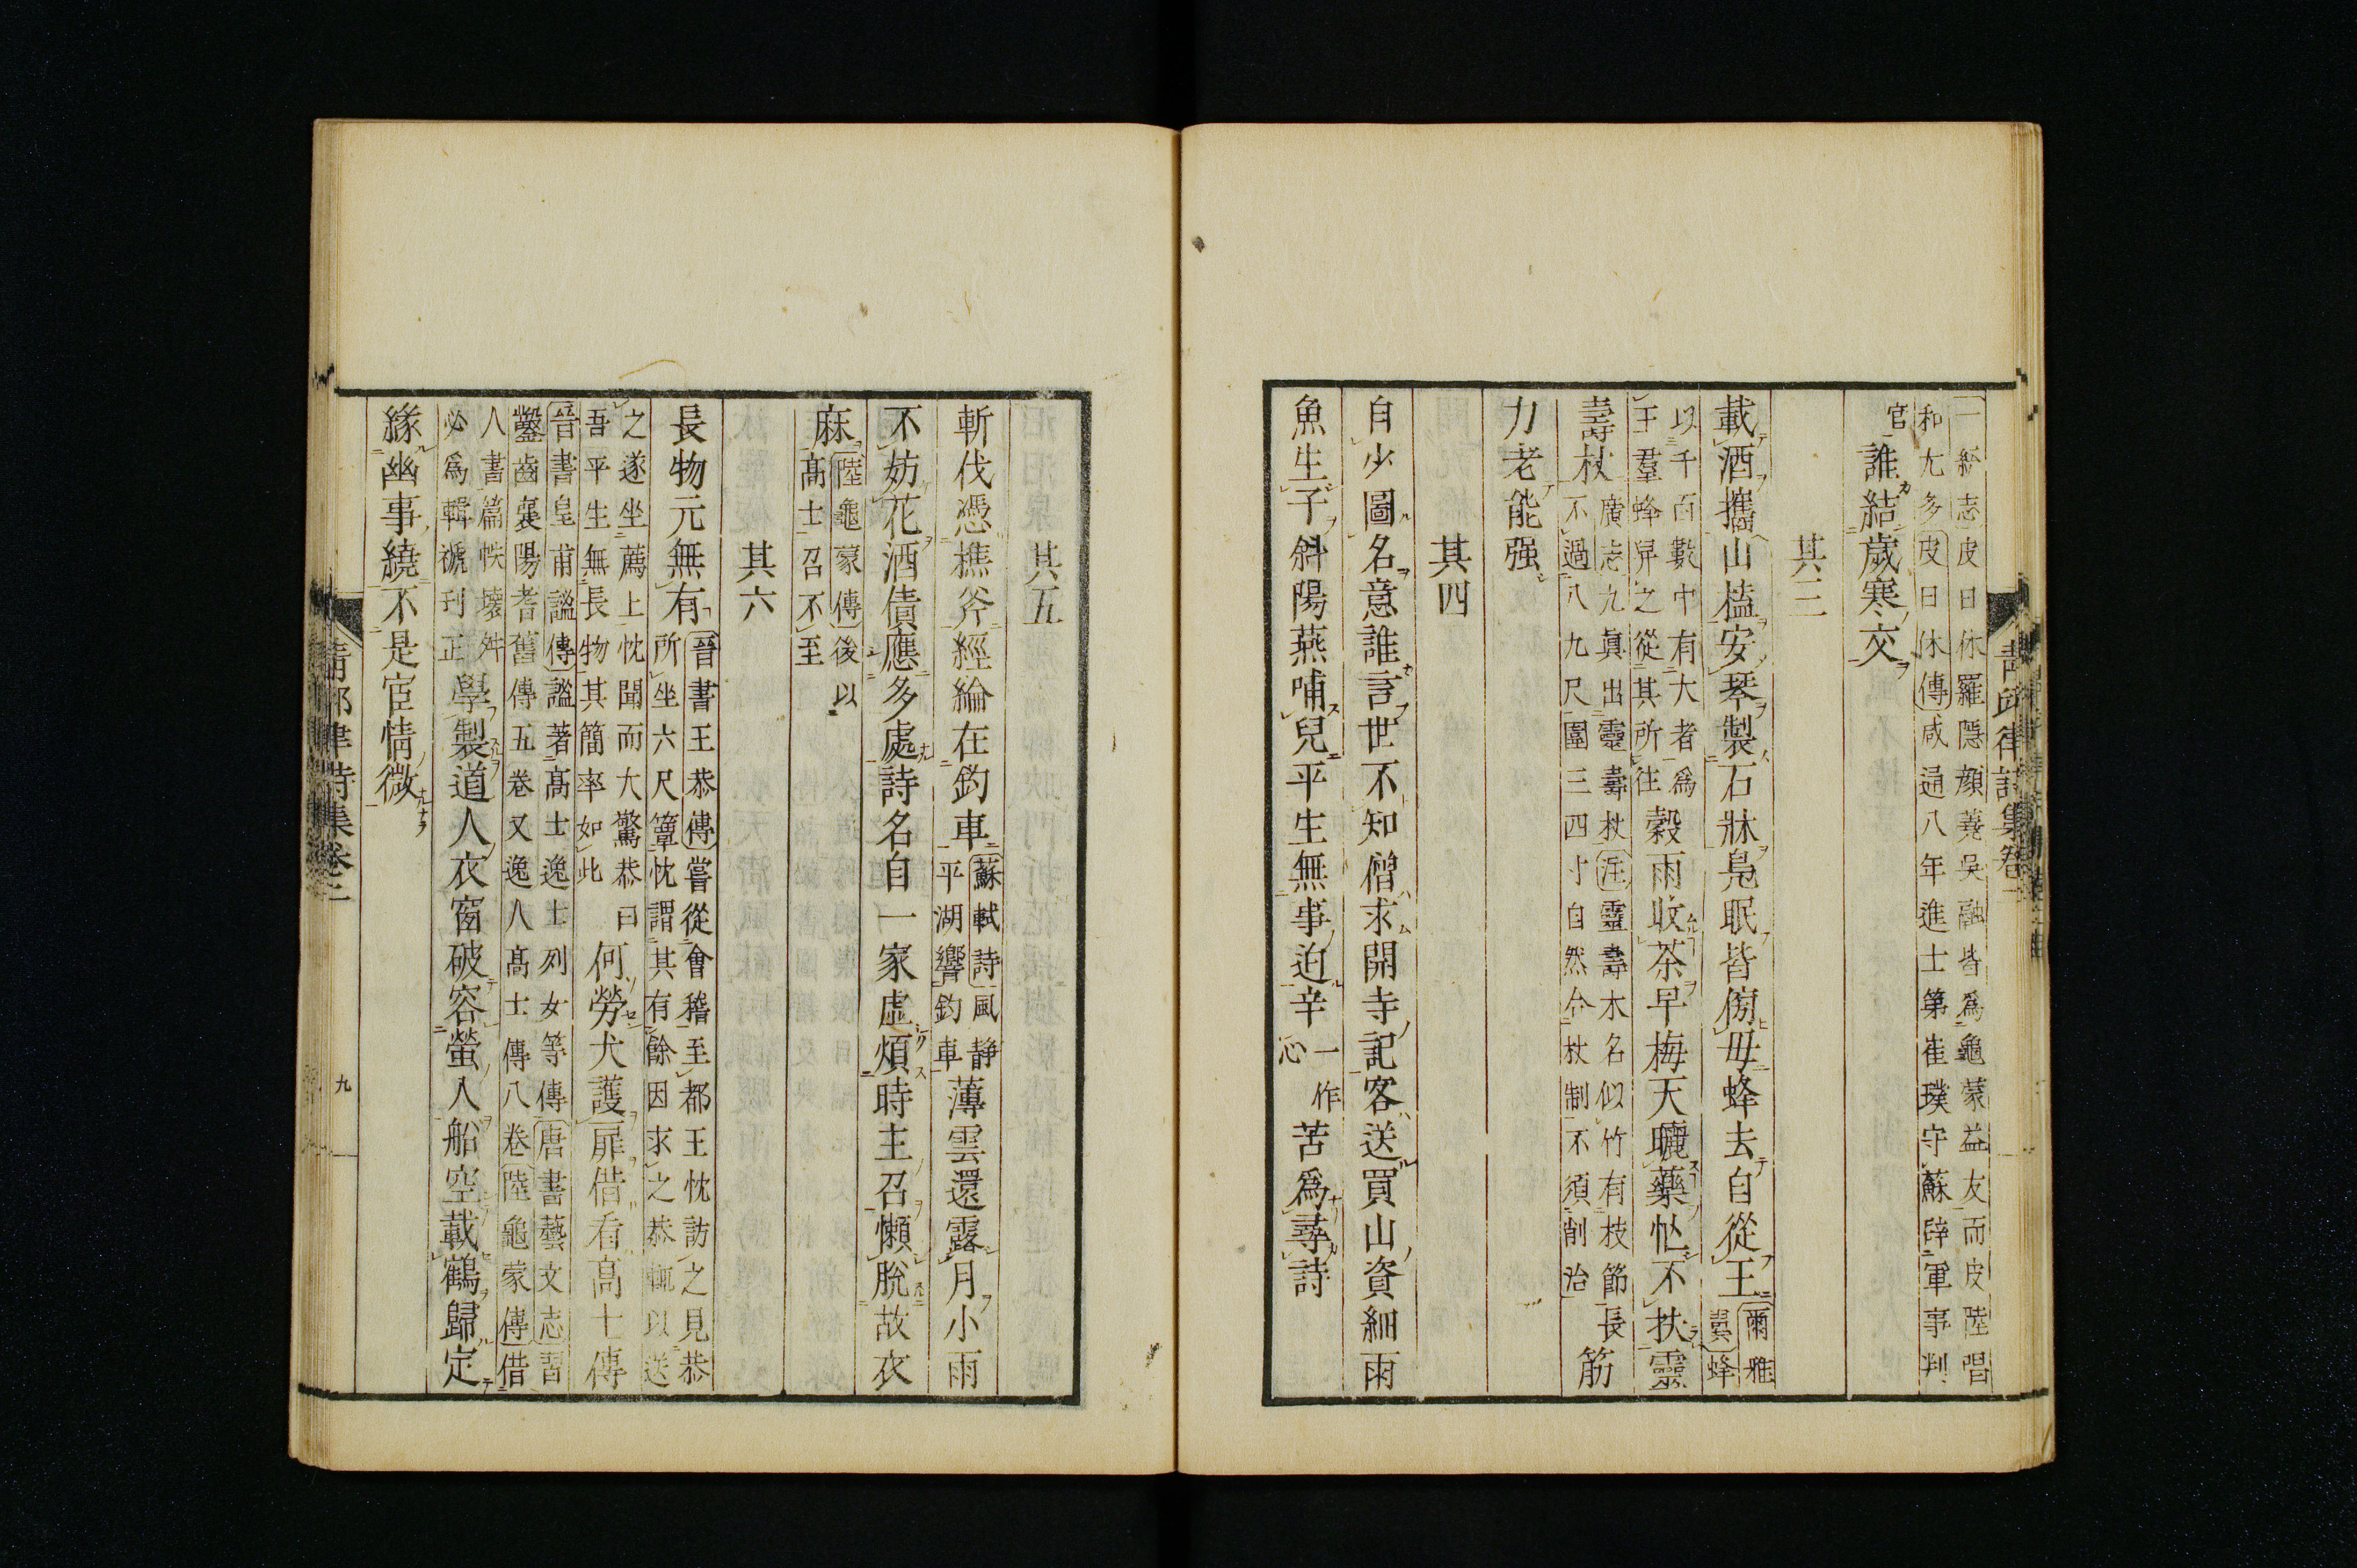 一經志皮日休羅隱顔蕘吳融皆爲龜蒙益友而皮陸唱
和尤多皮日休傳咸通八年進士第崔璞守蘇辟軍事判
官
誰結歲寒交
其三
載酒攜山榼安琴製石牀鳧眠皆傍母蜂去自從王
爾雅
翼蜂
以千百數中有大者爲
王羣蜂舁之從其所往
穀雨收茶早梅天曬藥忙不扶靈
壽杖
廣志九眞出靈壽杖注靈壽木名似竹有枝節長
不過八九尺圍三四寸自然合杖制不須削治
筋
力老能强
其四
自少圖名意誰言世不知僧求開寺記客送買山資細雨
魚生子斜陽燕哺兒平生無事迫辛
一作
心
苦爲尋詩
青邱律詩集卷二
其五
斬伐憑樵斧經綸在釣車
蘇軾詩風靜
平湖響釣車
薄雲還露月小雨
不妨花酒債應多處詩名自一家虛煩時主召懶脫故衣
麻
陸龜蒙傳後以
高士召不至
其六
長物元無有
晉書王恭傳嘗從會稽至都王忱訪之見恭
所坐六尺簟忱謂其有餘因求之恭輒以送
之遂坐薦上忱聞而大驚恭曰
吾平生無長物其簡率如此
何勞犬護扉借看高士傳
晉書皇甫謐傳謐著高士逸士列女等傳唐書藝文志習
鑿齒襄陽耆舊傳五卷又逸人高士傳八卷陸龜蒙傳借
人書篇帙壞舛
必爲輯褫刊正
學製道人衣窗破容螢入船空載鶴歸定
緣幽事繞不是宦情微
青邱律詩集卷二
九